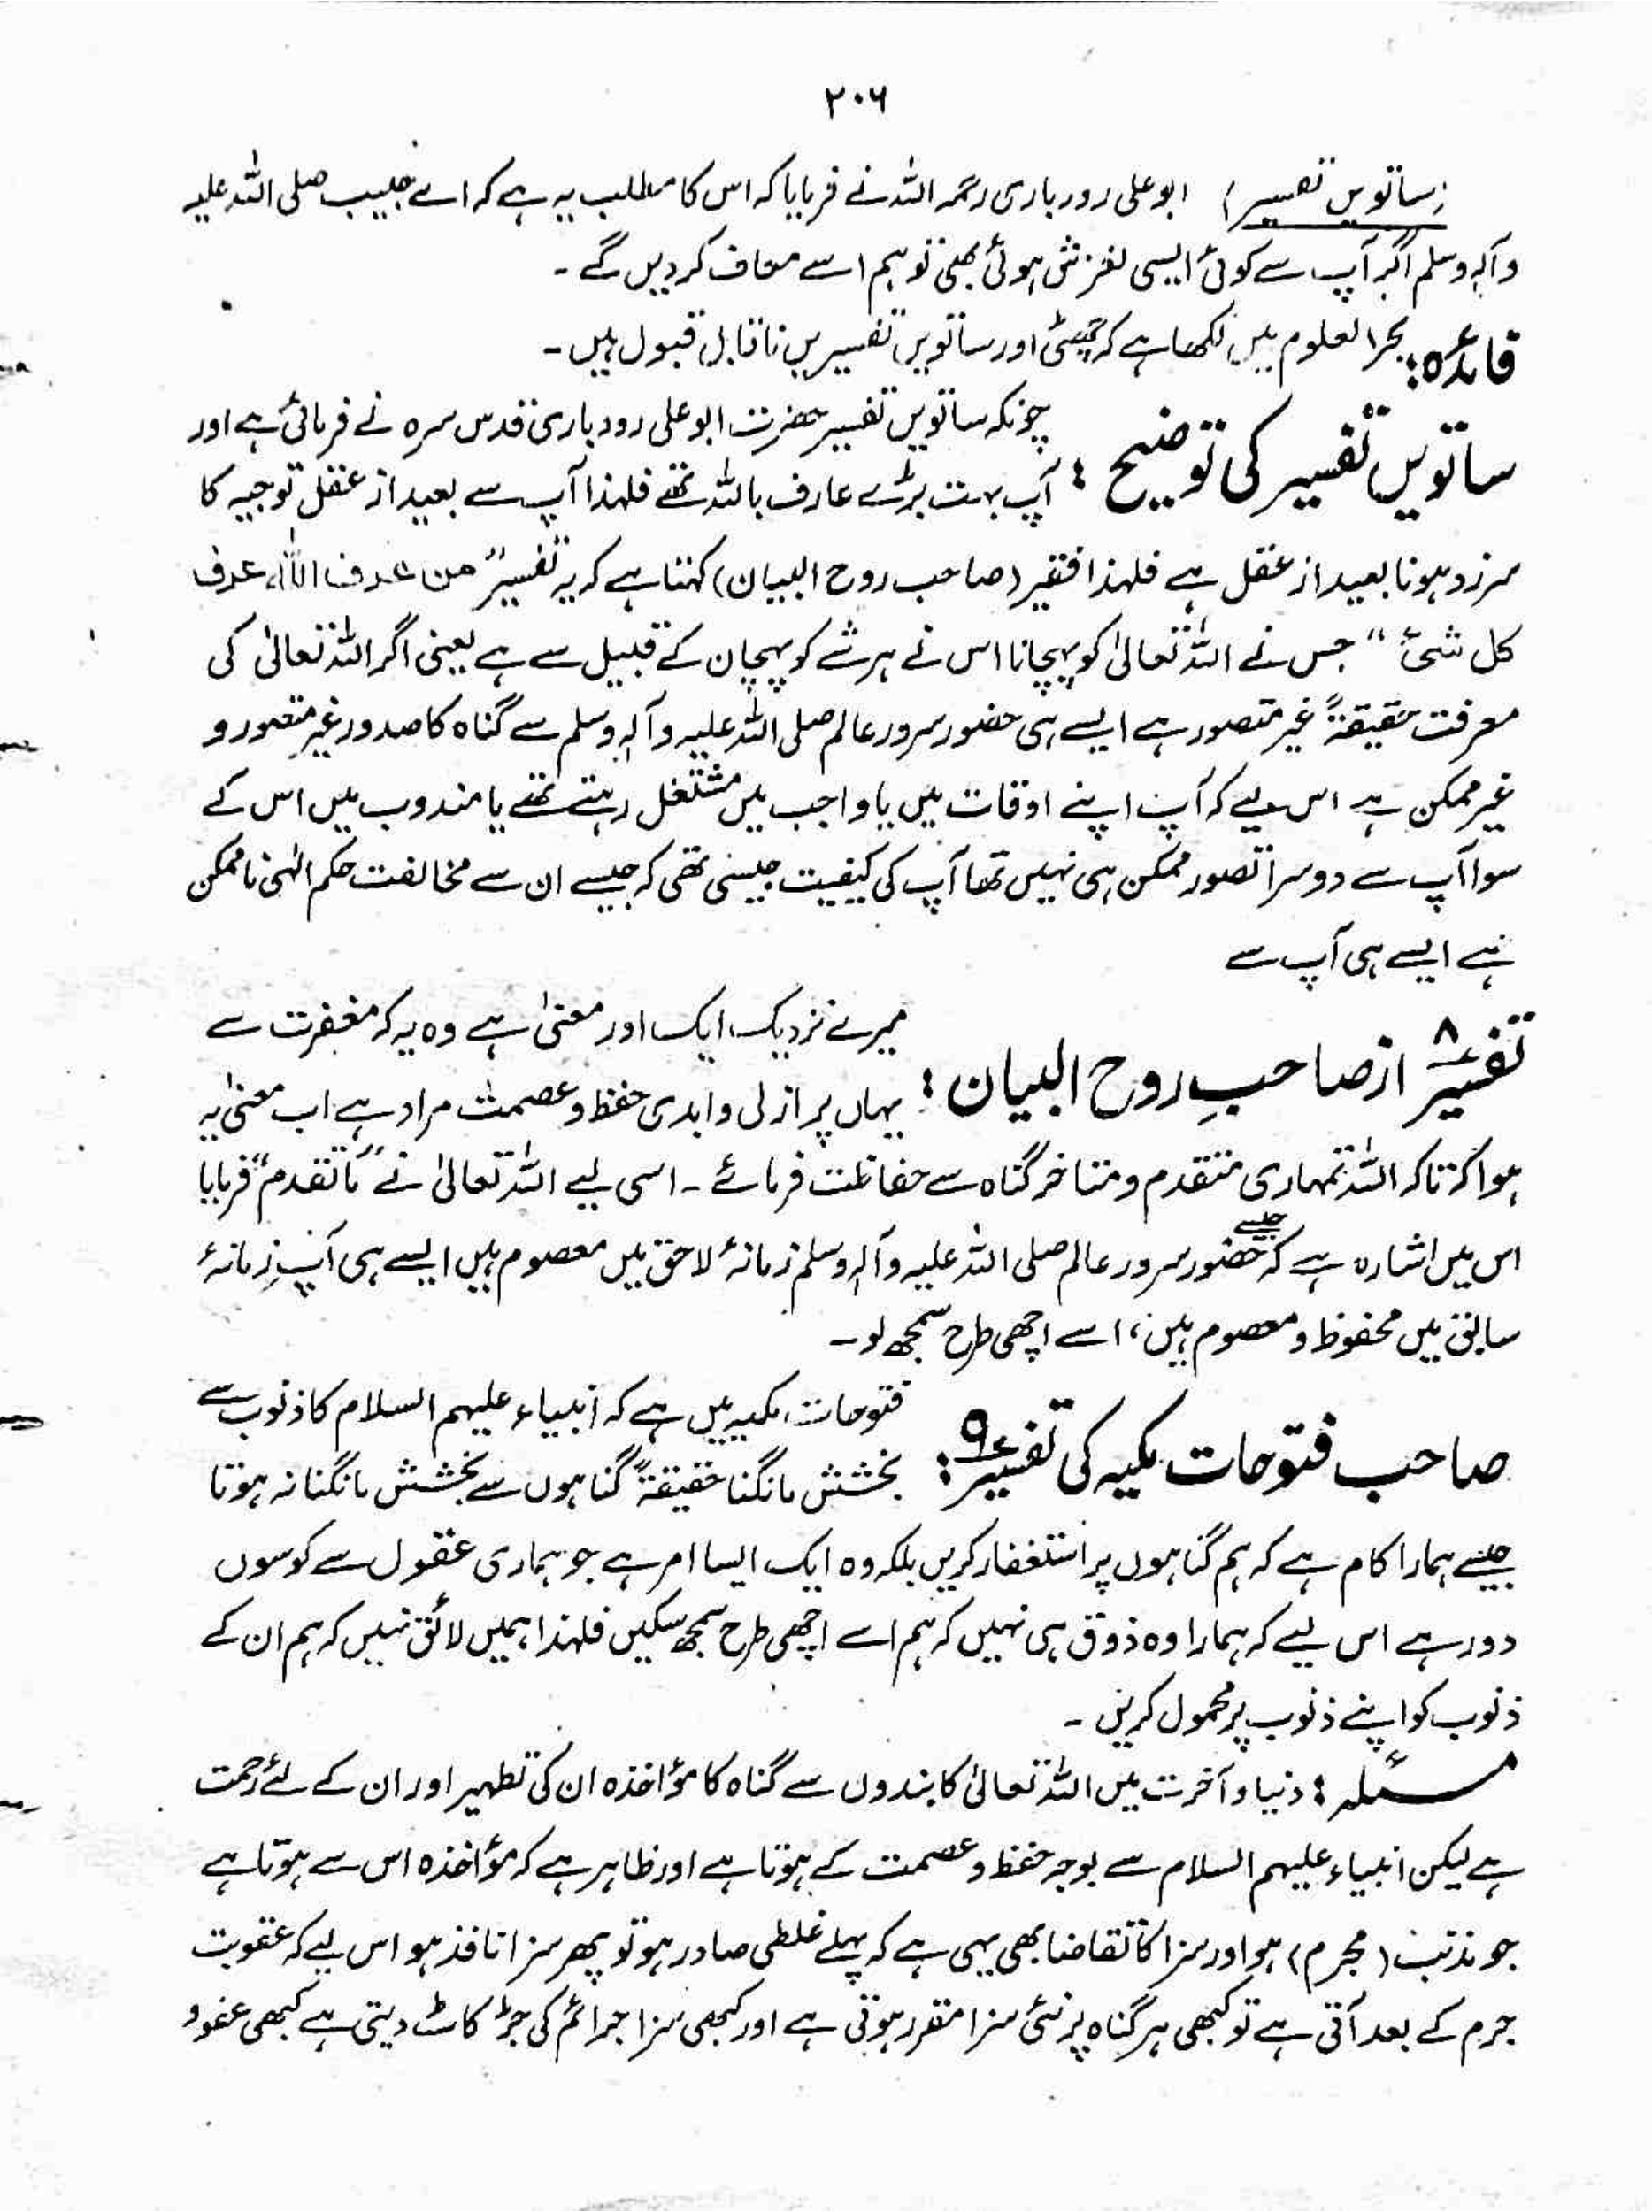 ۲۰۶
(ساتویں تفسیر) ابو علی رودباری رحمہ اللہ نے فرمایا کہ اس کا مطلب یہ ہے کہ اے حبیب صلی اللہ علیہ
وآلہ وسلم اگر آپ سے کوئی ایسی لغزش ہوئی بھی تو ہم اسے معاف کردیں گے۔
فائدہ: بحر العلوم میں لکھا ہے کہ چھٹی اور ساتویں تفسیریں ناقابل قبول ہیں۔
ساتویں تفسیر کی توضیح: چونکہ ساتویں تفسیر حضرت ابو علی رودباری قدس سرہ نے فرمائی ہے اور
آپ بہت بڑے عارف باللہ تھے فلہذا آپ سے بعید از عقل توجیہ کا
سرزد ہونا بعید از عقل ہے فلہذا فقیر (صاحب روح البیان) کہتا ہے کہ یہ تفسیر "من عرف اللہ عرف
کل شئ" جس نے اللہ تعالیٰ کو پہچانا اس نے ہر شے کو پہچان کے قبیل سے ہے یعنی اگر اللہ تعالیٰ کی
معرفت حقیقۃً غیر متصور ہے ایسے ہی حضور سرور عالم صلی اللہ علیہ وآلہ وسلم سے گناہ کا صدور غیر متصور و
غیر ممکن ہے اس لیے کہ آپ اپنے اوقات میں یا واجب میں مشتغل رہتے تھے یا مندوب میں اس کے
سوا آپ سے دوسرا تصور ممکن ہی نہیں تھا آپ کی کیفیت جیسی تھی کہ جیسے ان سے مخالفت حکم الٰہی ناممکن
ہے ایسے ہی آپ سے
تفسیر ۸ از صاحبِ روح البیان: میرے نزدیک ایک اور معنیٰ ہے وہ یہ کہ مغفرت سے
یہاں پر ازلی و ابدی حفظ و عصمت مراد ہے اب معنیٰ یہ
ہوا کہ تاکہ اللہ تمہاری متقدم و متاخر گناہ سے حفاظت فرمائے۔ اسی لیے اللہ تعالیٰ نے "ما تقدم" فرمایا
اس میں اشارہ ہے کہ جیسے حضور سرور عالم صلی اللہ علیہ وآلہ وسلم زمانۂ لاحق میں معصوم ہیں ایسے ہی آپ زمانۂ
سابق میں محفوظ و معصوم ہیں، اسے اچھی طرح سمجھ لو۔
صاحب فتوحات مکیہ کی تفسیر ۹: فتوحات مکیہ میں ہے کہ انبیاء علیہم السلام کا ذنوب سے
بخشش مانگنا حقیقۃً گناہوں سے بخشش مانگنا نہ ہوتا
جیسے ہمارا کام ہے کہ ہم گناہوں پر استغفار کریں بلکہ وہ ایک ایسا امر ہے جو ہماری عقول سے کوسوں
دور ہے اس لیے کہ ہمارا وہ ذوق ہی نہیں کہ ہم اسے اچھی طرح سمجھ سکیں فلہذا ہمیں لائق نہیں کہ ہم ان کے
ذنوب کو اپنے ذنوب پر محمول کریں۔
مسئلہ: دنیا و آخرت میں اللہ تعالیٰ کا بندوں سے گناہ کا مؤاخذہ ان کی تطہیر اور ان کے لئے رحمت
ہے لیکن انبیاء علیہم السلام سے بوجہ حفظ و عصمت کے ہوتا ہے اور ظاہر ہے کہ مؤاخذہ اس سے ہوتا ہے
جو مذنب (مجرم) ہو اور سزا کا تقاضا بھی یہی ہے کہ پہلے غلطی صادر ہو تو پھر سزا نافذ ہو اس لیے کہ عقوبت
جرم کے بعد آتی ہے تو کبھی ہر گناہ پر نئی سزا مقرر ہوتی ہے اور کبھی سزا جرائم کی جڑ کاٹ دیتی ہے کبھی عفو و